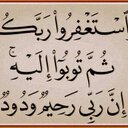 ٱسْتَغْفِرُوا۟ رَبَّكُ
ثُمَّ تُوبُوٓا۟ إِلَيْهِ ۚ
إِنَّ رَبِّى رَحِيمٌ وَدُودٌ